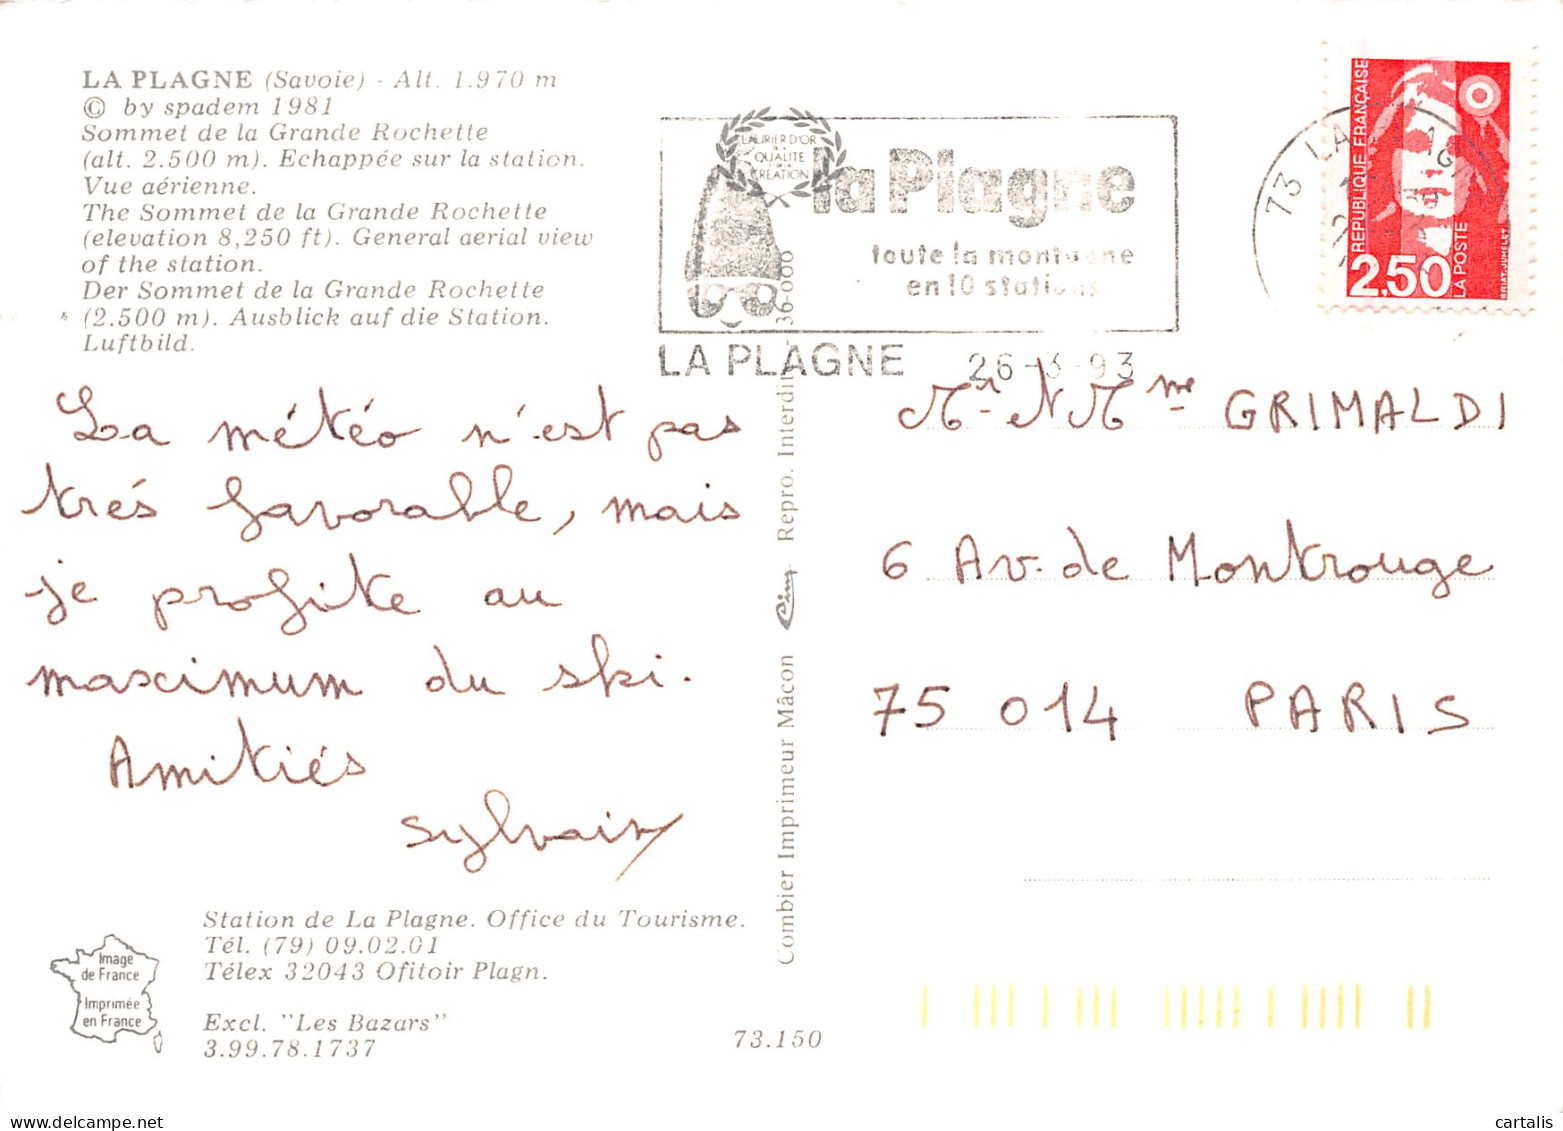 LA PLAGNE (Savoie) - Alt. 1.970 m
© by spadem 1981
Sommet de la Grande Rochette
(alt. 2.500 m). Echappée sur la station.
Vue aérienne.
The Sommet de la Grande Rochette
(elevation 8,250 ft). General aerial view
of the station.
Der Sommet de la Grande Rochette
(2.500 m). Ausblick auf die Station.
Luftbild.
La météo n'est pas
trés favorable, mais
je profite au
maximum du ski.
Amitiés
Sylvain
Station de La Plagne. Office du Tourisme.
Tél. (79) 09.02.01
Télex 32043 Ofitoir Plagn.
Excl. "Les Bazars"
3.99.78.1737
Image
de France
Imprimée
en France
73.150
Combier Imprimeur Mâcon Cim Repro. Interdite 36-000
LAURIER D'OR
QUALITE
CREATION
la Plagne
toute la montagne
en 10 stations
LA PLAGNE 26-3-93
73 LA
REPUBLIQUE FRANÇAISE
2,50
LA POSTE
BRIAT-JUMELET
Mr et Mme GRIMALDI
6 Av. de Montrouge
75 014 PARIS
cartalis